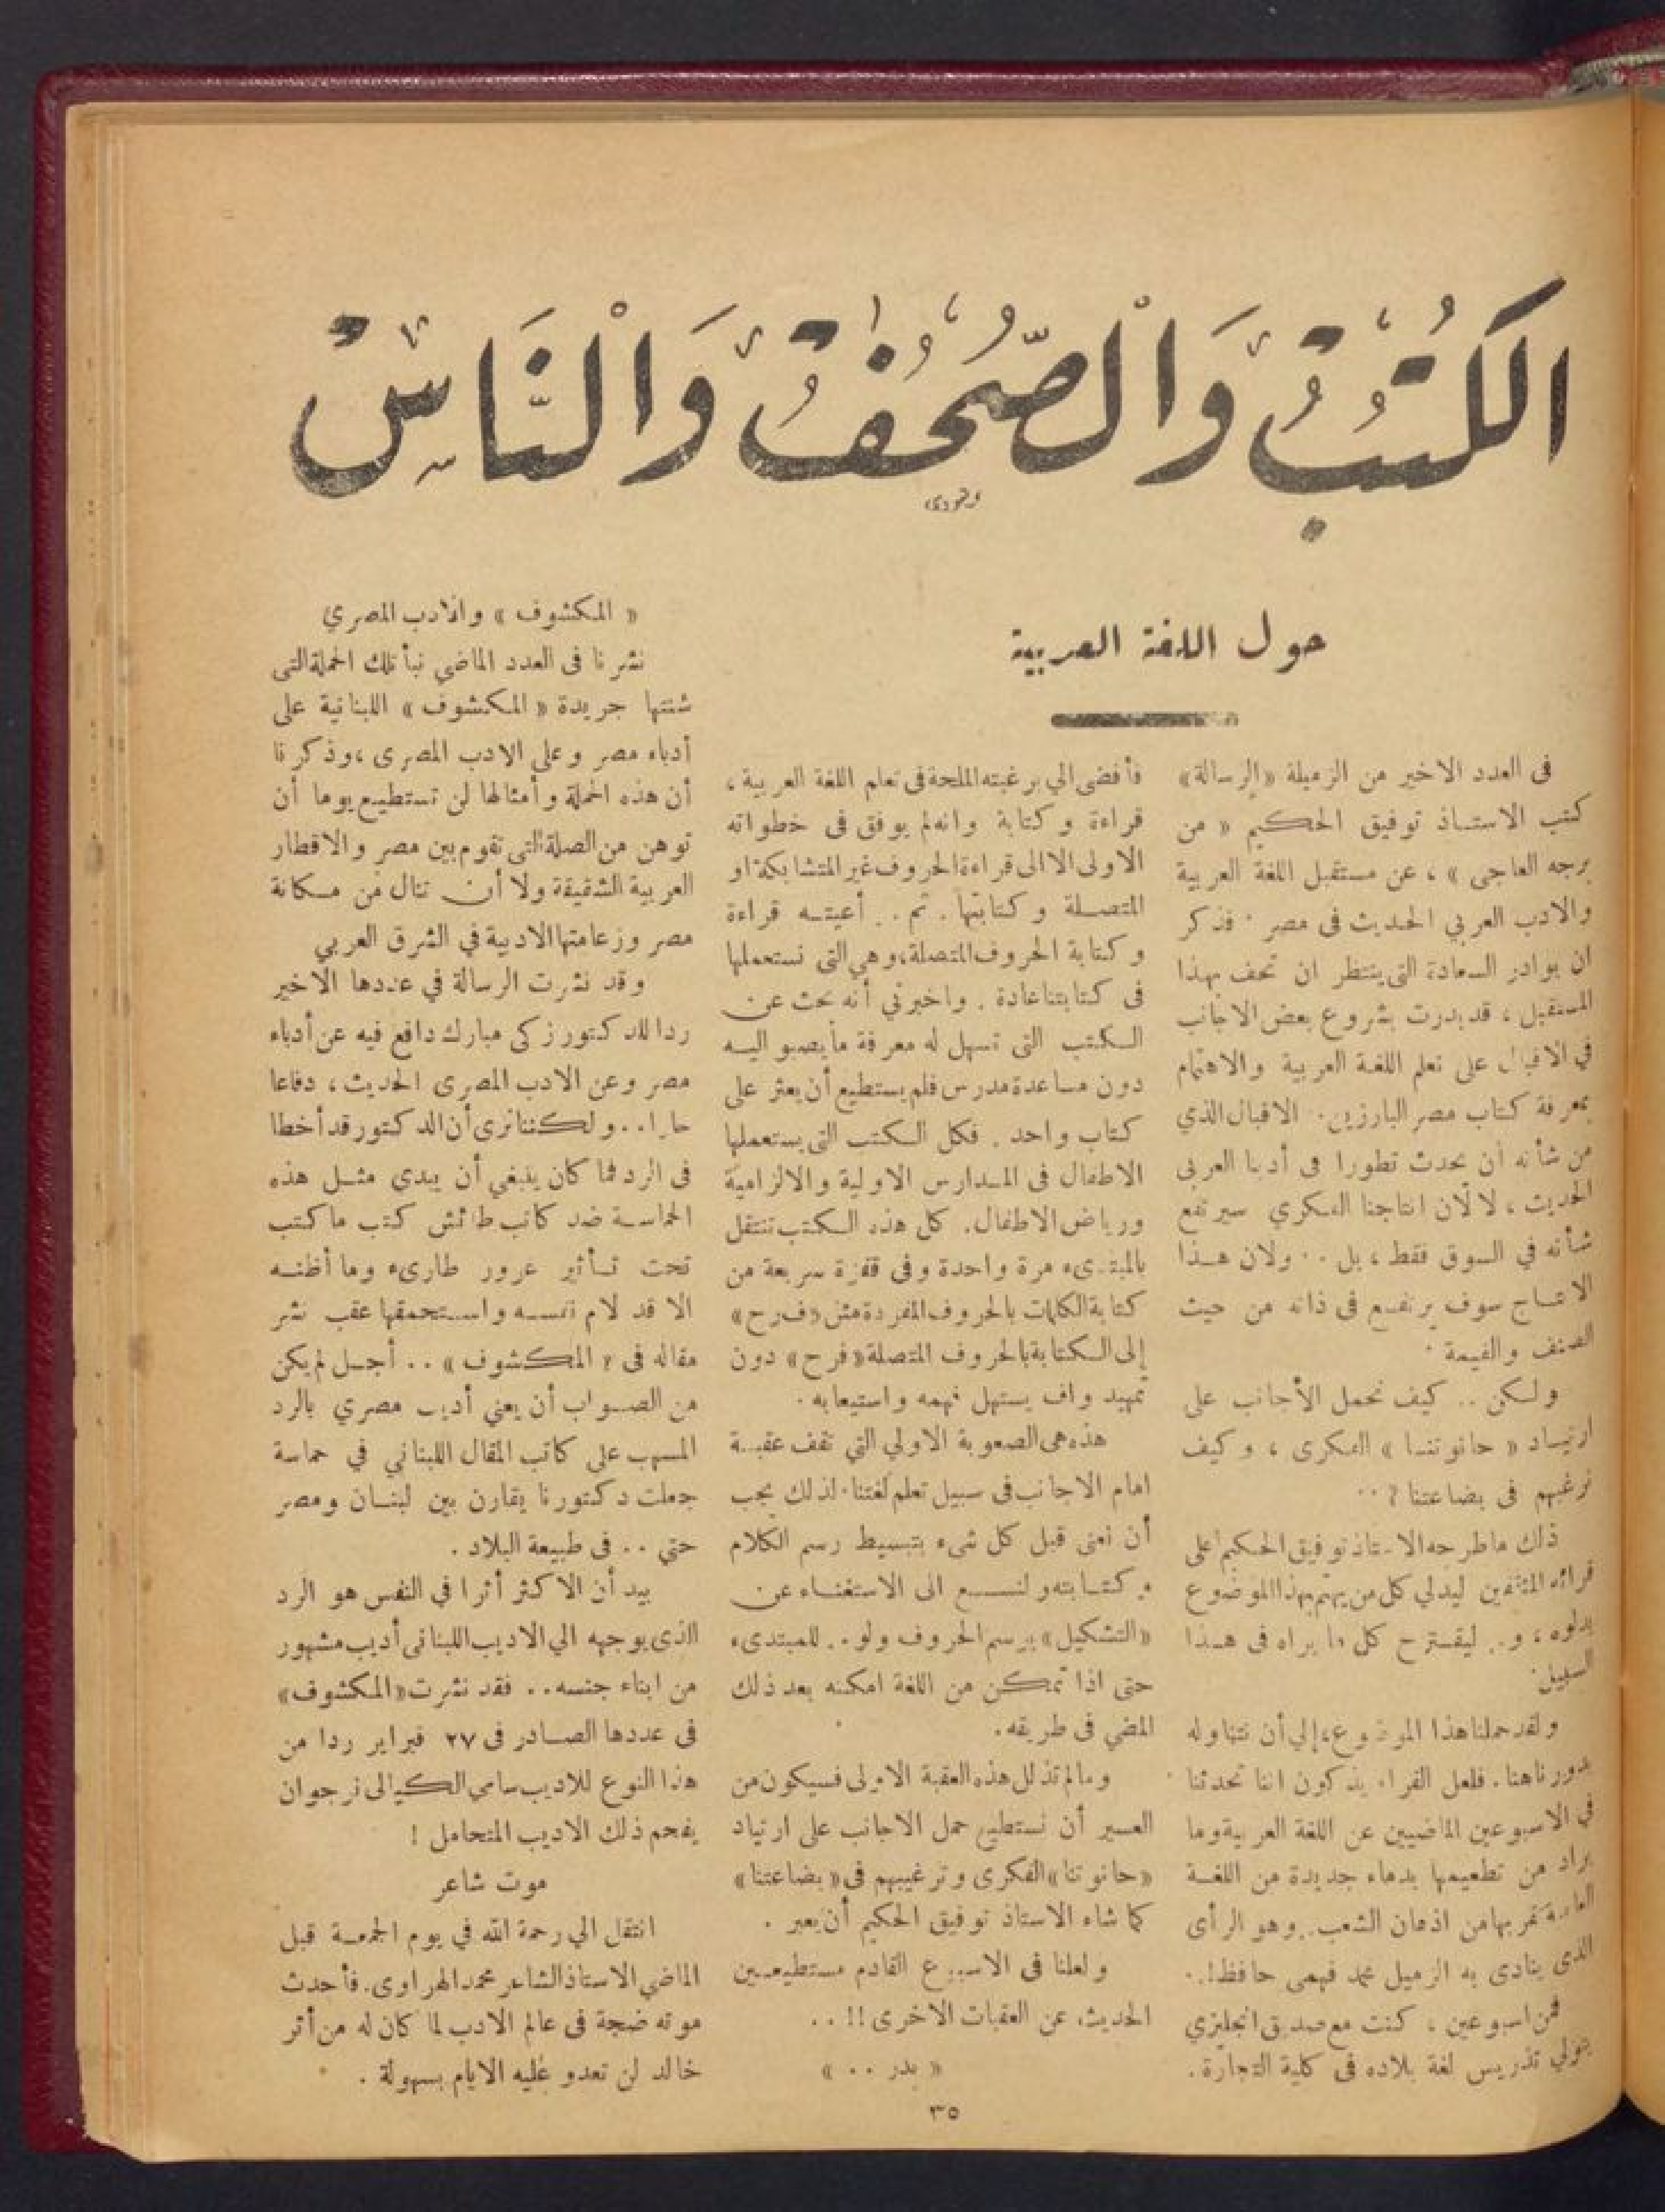 الكُتُبُ وَالصُّحُفُ وَالنَّاسُ
حول اللغة العربية
فى العدد الاخير من الزميلة «الرسالة»
كتب الاستاذ توفيق الحكيم « من
برجه العاجى » ، عن مستقبل اللغة العربية
والادب العربي الحديث فى مصر . فذكر
ان بوادر السعادة التى ينتظر ان تحف بهذا
المستقبل ، قد بدرت بشروع بعض الاجانب
في الاقبال على تعلم اللغة العربية والاهتمام
بمعرفة كتاب مصر البارزين . الاقبال الذي
من شأنه أن يحدث تطورا فى أدبنا العربى
الحديث ، لا لأن انتاجنا الفكري سيرتفع
شأنه في السوق فقط ، بل .. ولان هذا
الانتاج سوف يرتفع فى ذاته من حيث
الصنف والقيمة .
ولكن .. كيف نحمل الأجانب على
ارتياد « حانوتنا » الفكرى ، وكيف
نرغبهم فى بضاعتنا ? ..
ذلك ماطرحه الاستاذ توفيق الحكيم على
قرائه المثقفين ليدلي كل من يهتم بهذا الموضوع
بدلوه ، و.. ليقترح كل ما يراه فى هذا
السبيل .
ولقد حملنا هذا الموضوع ، إلي أن نتناوله
بدورنا هنا . فلعل القراء يذكرون اننا تحدثنا
في الاسبوعين الماضيين عن اللغة العربية وما
يراد من تطعيمها بدماء جديدة من اللغة
العامية تقربها من اذهان الشعب .. وهو الرأى
الذى ينادى به الزميل محمد فهمى حافظ ! ..
فمن اسبوعين ، كنت مع صديق انجليزي
يتولي تدريس لغة بلاده فى كلية التجارة .
فأفضى الي برغبته الملحة فى تعلم اللغة العربية ،
قراءة وكتابة وانه لم يوفق فى خطواته
الاولى الا الى قراءة الحروف غير المتشابكة او
المتصلة وكتابتها . ثم .. أعيته قراءة
وكتابة الحروف المتصلة ، وهي التى نستعملها
فى كتابتنا عادة . واخبرني أنه بحث عن
الكتب التى تسهل له معرفة ما يصبو اليه
دون مساعدة مدرس فلم يستطيع أن يعثر على
كتاب واحد . فكل الكتب التى يستعملها
الاطفال فى المدارس الاولية والالزامية
ورياض الاطفال . كل هذه الكتب تنتقل
بالمبتدىء مرة واحدة وفى قفزة سريعة من
كتابة الكلمات بالحروف المفردة مثل (ف ر ح)
إلى الكتابة بالحروف المتصلة «فرح» دون
تمهيد واف يستهل فهمه واستيعابه .
هذه هى الصعوبة الاولي التي تقف عقبة
امام الاجانب فى سبيل تعلم لغتنا . لذلك يجب
أن نعنى قبل كل شىء بتبسيط رسم الكلام
وكتابته ولنسع الى الاستغناء عن
«التشكيل» برسم الحروف ولو .. للمبتدىء
حتى اذا تمكن من اللغة امكنه بعد ذلك
المضي فى طريقه .
ومالم تذلل هذه العقبة الاولى فسيكون من
العسير أن نستطيع حمل الاجانب على ارتياد
«حانوتنا» الفكرى وترغيبهم فى «بضاعتنا»
كما شاء الاستاذ توفيق الحكيم أن يعبر .
ولعلنا فى الاسبوع القادم مستطيعين
الحديث عن العقبات الاخرى !! ..
« بدر .. »
« المكشوف » والادب المصري
نشرنا فى العدد الماضي نبأ تلك الحملة التى
شنتها جريدة « المكشوف » اللبنانية على
أدباء مصر وعلى الادب المصرى ، وذكرنا
أن هذه الحملة وأمثالها لن تستطيع يوما أن
توهن من الصلة التى تقوم بين مصر والاقطار
العربية الشقيقة ولا أن تنال من مكانة
مصر وزعامتها الادبية في الشرق العربي
وقد نشرت الرسالة في عددها الاخير
ردا للدكتور زكى مبارك دافع فيه عن أدباء
مصر وعن الادب المصرى الحديث ، دفاعا
حارا .. ولكننا نرى أن الدكتور قد أخطا
فى الرد فما كان ينبغي أن يبدي مثل هذه
الحماسة ضد كاتب طائش كتب ما كتب
تحت تأثير غرور طارىء وما أظنه
الا قد لام نفسه واستحمقها عقب نشر
مقاله فى « المكشوف » .. أجل لم يكن
من الصواب أن يعني أديب مصري بالرد
المسهب على كاتب المقال اللبناني في حماسة
جعلت دكتورنا يقارن بين لبنان ومصر
حتي .. فى طبيعة البلاد .
بيد أن الاكثر أثرا في النفس هو الرد
الذى يوجهه الي الاديب اللبنانى أديب مشهور
من ابناء جنسه .. فقد نشرت «المكشوف»
فى عددها الصادر فى ٢٧ فبراير ردا من
هذا النوع للاديب سامي الكيالى نرجو ان
يفحم ذلك الاديب المتحامل !
موت شاعر
انتقل الي رحمة الله في يوم الجمعة قبل
الماضي الاستاذ الشاعر محمد الهراوى . فأحدث
موته ضجة فى عالم الادب لما كان له من أثر
خالد لن تعدو عليه الايام بسهولة .
٣٥